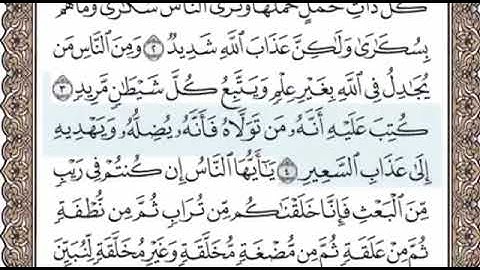 كُلُّ ذَاتِ حَمْلٍ حَمْلَهَا وَتَرَى ٱلنَّاسَ سُكَٰرَىٰ وَمَا هُم
بِسُكَٰرَىٰ وَلَٰكِنَّ عَذَابَ ٱللَّهِ شَدِيدٌ ٢ وَمِنَ ٱلنَّاسِ مَن
يُجَٰدِلُ فِى ٱللَّهِ بِغَيْرِ عِلْمٍ وَيَتَّبِعُ كُلَّ شَيْطَٰنٍ مَّرِيدٍ ٣
كُتِبَ عَلَيْهِ أَنَّهُۥ مَن تَوَلَّاهُ فَأَنَّهُۥ يُضِلُّهُۥ وَيَهْدِيهِ
إِلَىٰ عَذَابِ ٱلسَّعِيرِ ٤ يَٰٓأَيُّهَا ٱلنَّاسُ إِن كُنتُمْ فِى رَيْبٍ
مِّنَ ٱلْبَعْثِ فَإِنَّا خَلَقْنَٰكُم مِّن تُرَابٍ ثُمَّ مِن نُّطْفَةٍ
ثُمَّ مِنْ عَلَقَةٍ ثُمَّ مِن مُّضْغَةٍ مُّخَلَّقَةٍ وَغَيْرِ مُخَلَّقَةٍ لِّنُبَيِّنَ